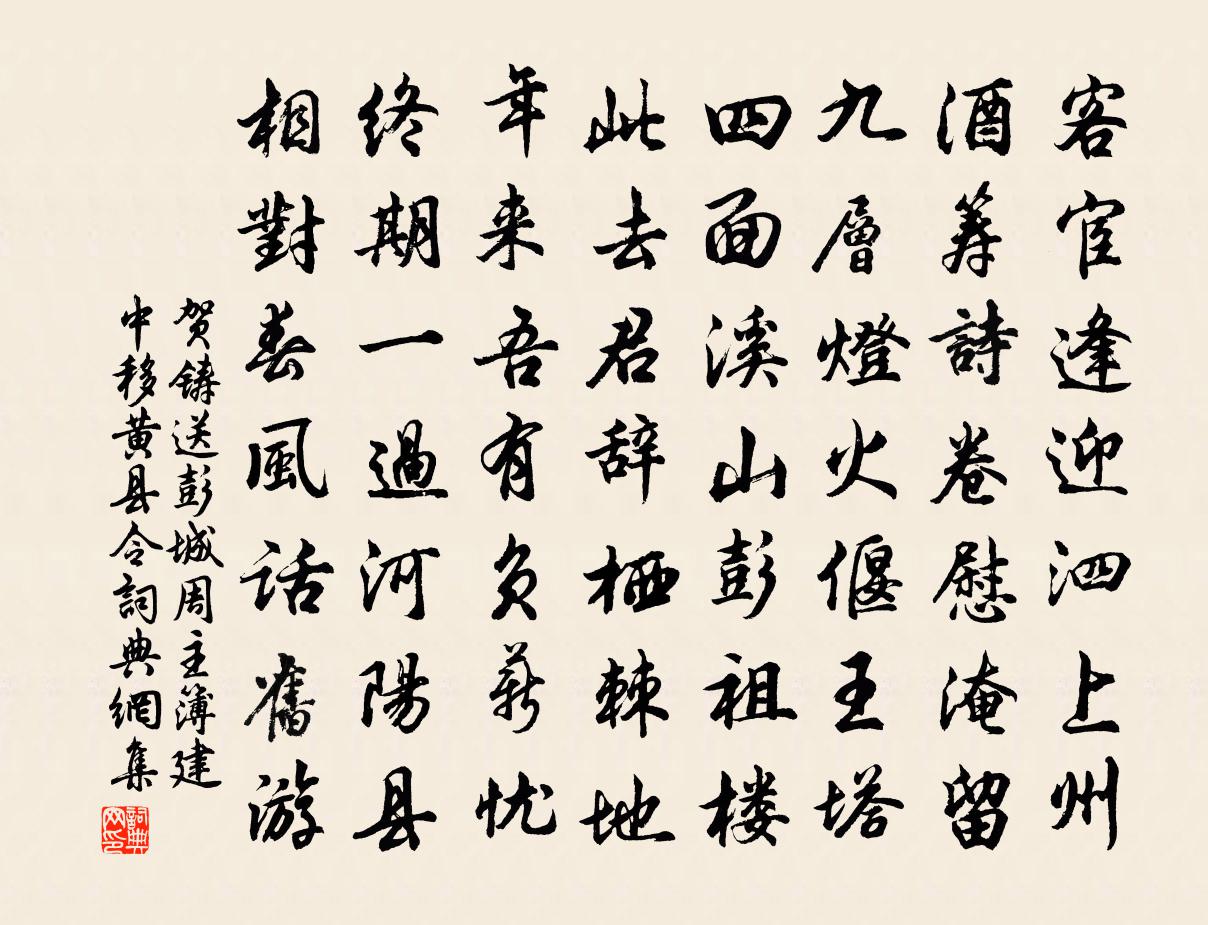 客宦逢迎泗上州
酒筹詩卷慰淹留
九層燈火偃王塔
四面溪山彭祖楼
此去君辞栖棘地
年来吾有负薪忧
終期一過河陽县
相對春風話舊游
贺鑄送彭城周主簿建
中移黄县令詞典網集
詞典网印